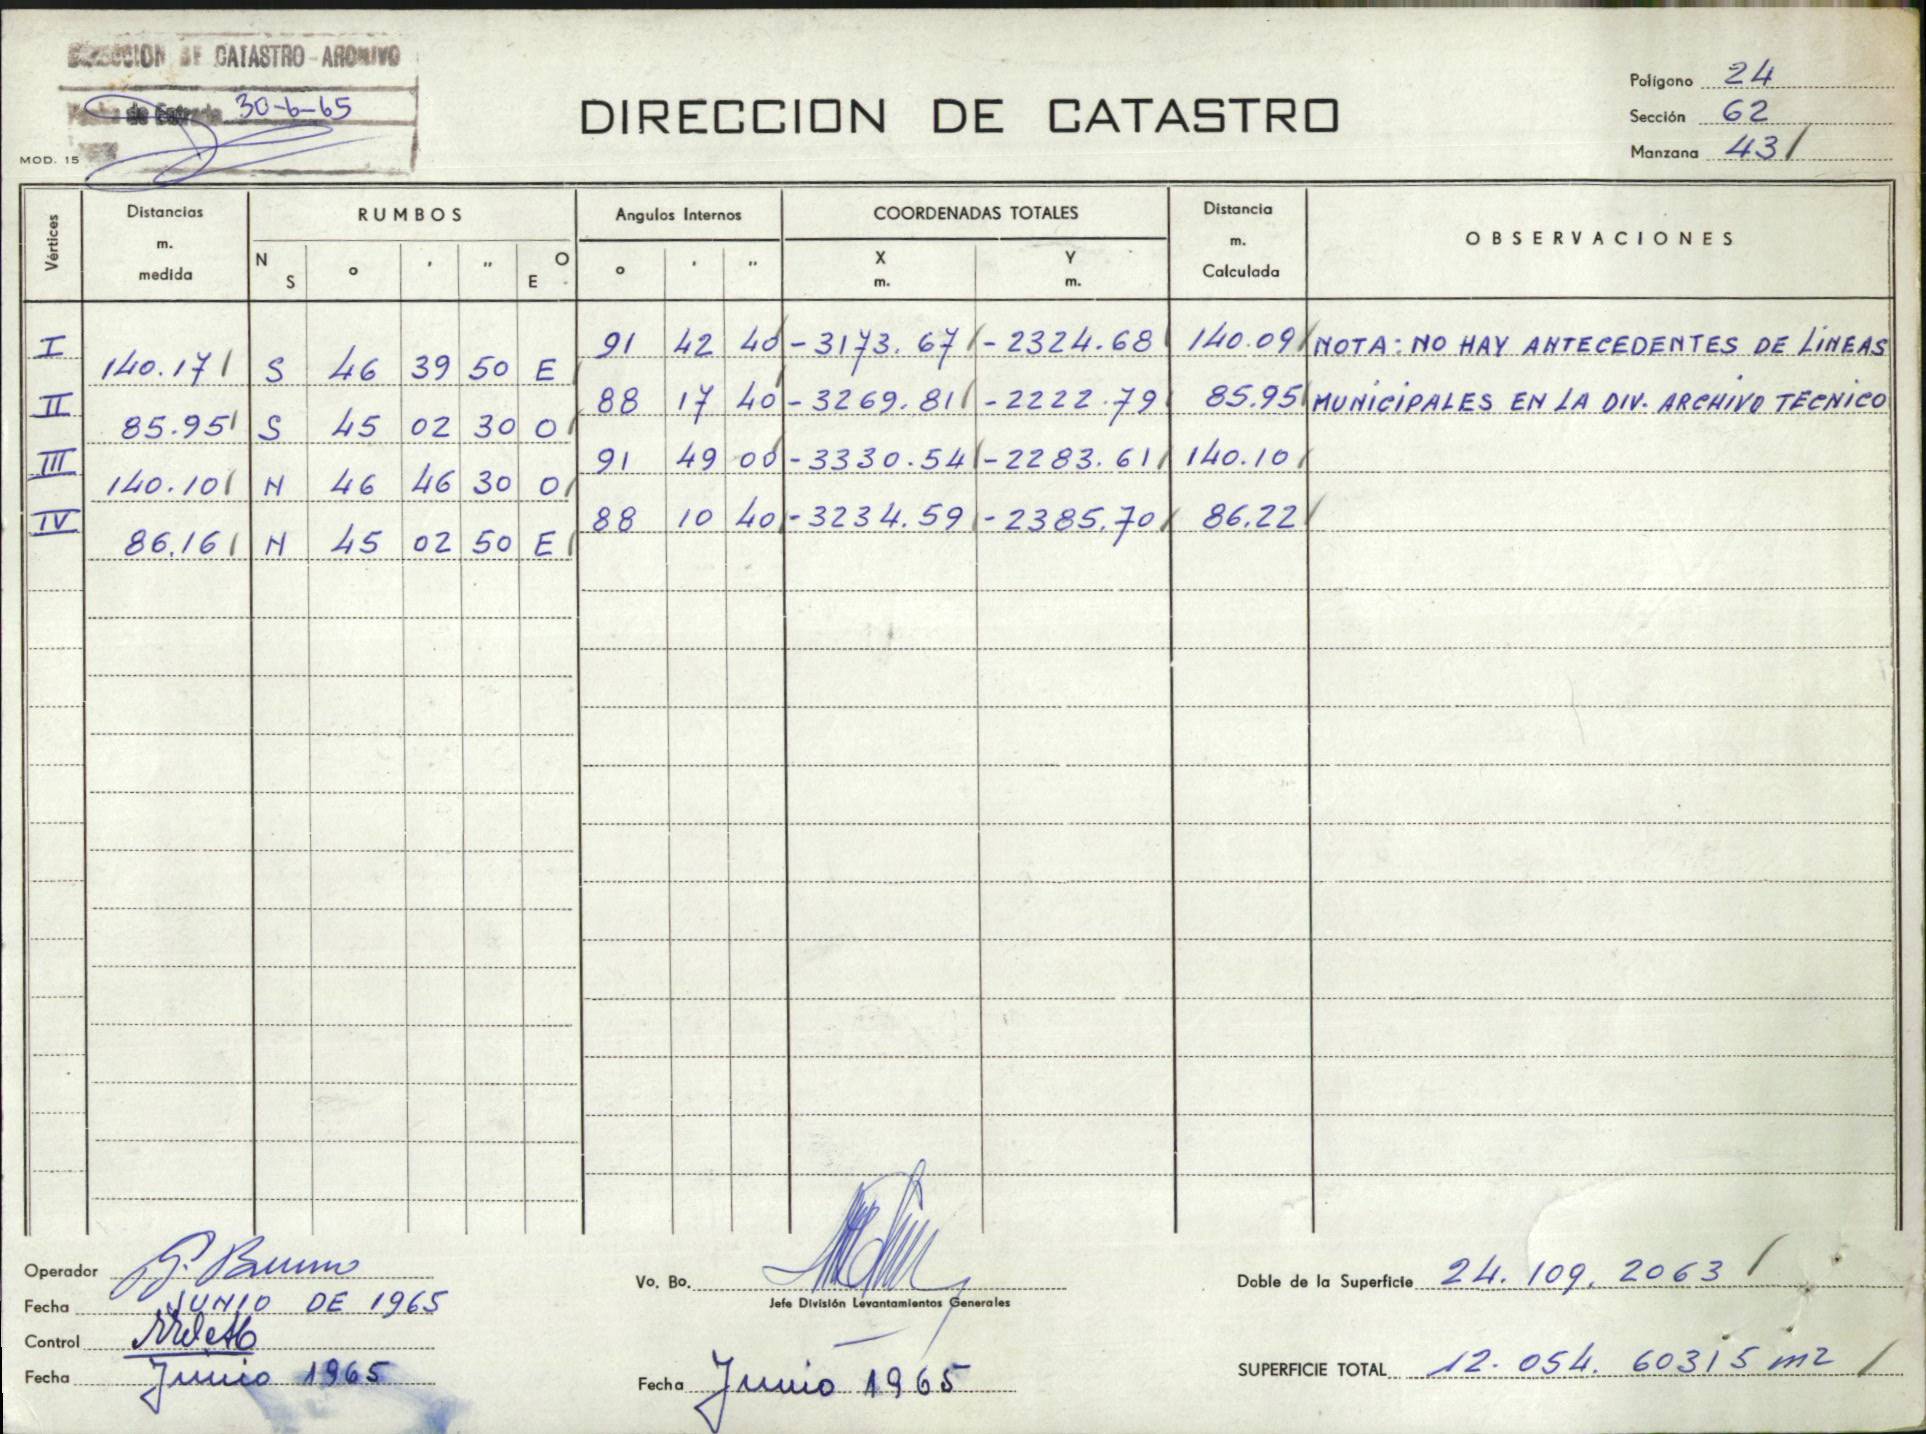 DIRECCION DE CATASTRO - ARCHIVO
Fecha de Entrada 30-6-65
MOD. 15
DIRECCION DE CATASTRO
Polígono 24
Sección 62
Manzana 43/
Vértices
Distancias m. medida
RUMBOS
N S ° ' " O E
Angulos Internos
° ' "
COORDENADAS TOTALES
X m. Y m.
Distancia m. Calculada
OBSERVACIONES
I 91 42 40 -3173.67/ -2324.68 140.09/ NOTA: NO HAY ANTECEDENTES DE LíNEAS
140.17/ S 46 39 50 E
II 88 17 40 -3269.81/ -2222.79 85.95 MUNICIPALES EN LA DIV. ARCHIVO TECNICO
85.95/ S 45 02 30 O/
III 91 49 00 -3330.54/ -2283.61/ 140.10/
140.10/ N 46 46 30 O/
IV 88 10 40/ -3234.59/ -2385.70/ 86.22/
86.16/ N 45 02 50 E/
Operador G. Bruno
Fecha JUNIO DE 1965
Control
Fecha Junio 1965
Vo. Bo.
Jefe División Levantamientos Generales
Fecha Junio 1965
Doble de la Superficie 24.109.2063 /
SUPERFICIE TOTAL 12.054.60315 m2 /